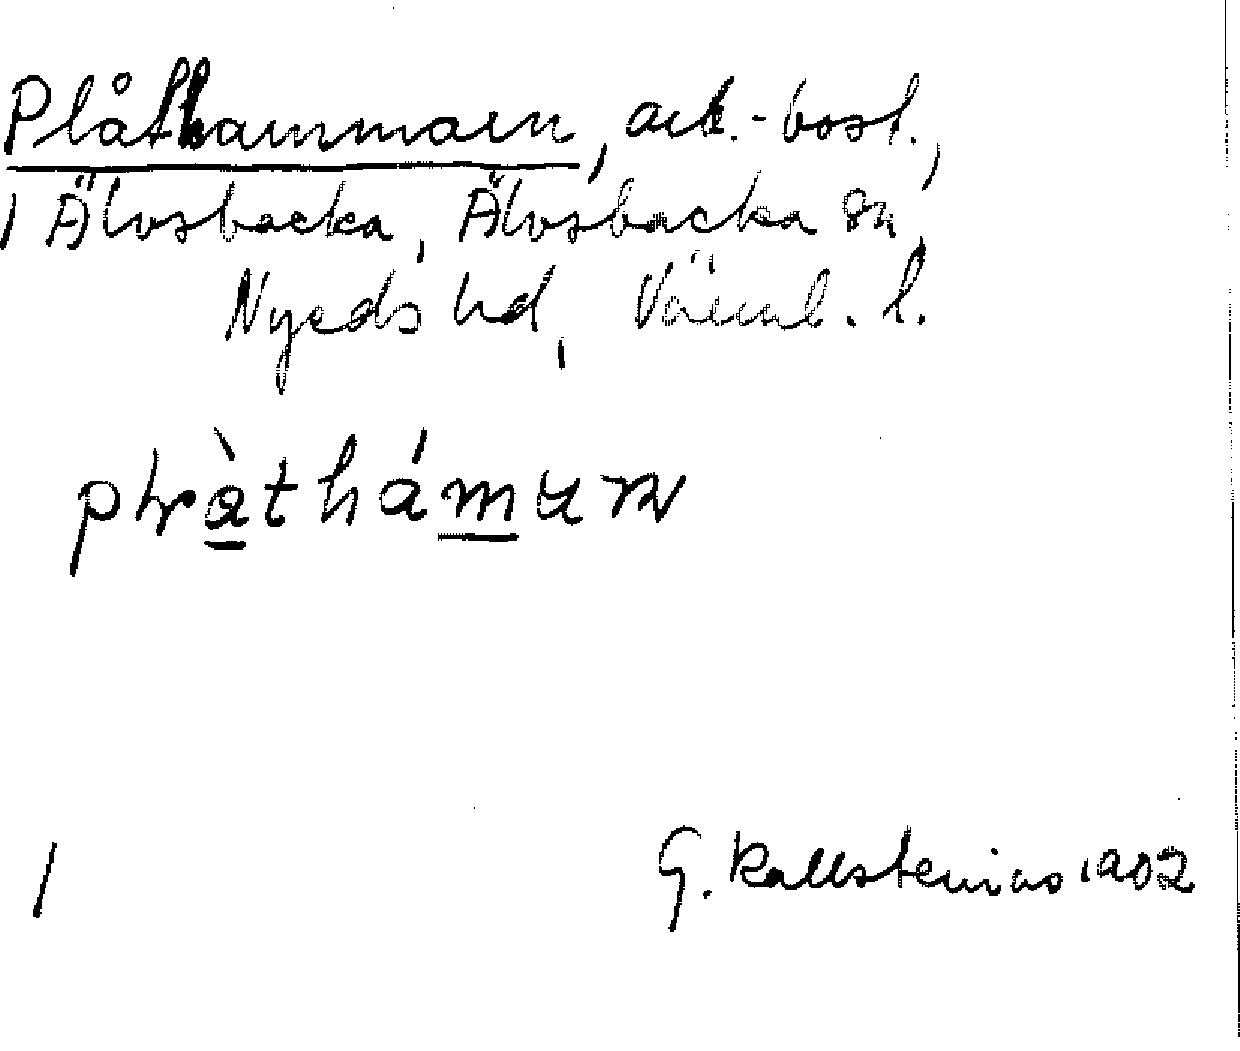 Plåthammaren, ark.-bost.,
i Älvsbacka, Älvsbacka sn,
Nyeds hd, Värml. l.
plràthámurn
1
G. Kallstenius 1902